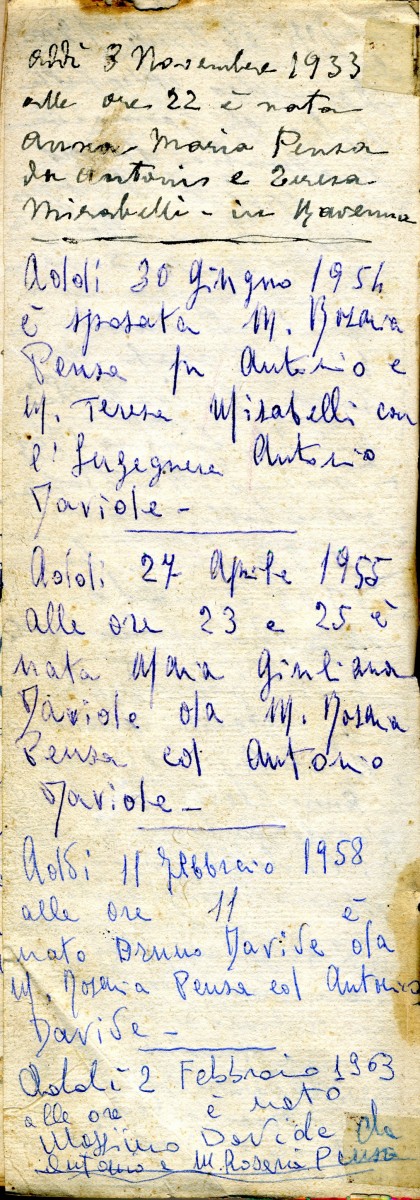 Addì 3 Novembre 1933
alle ore 22 è nata
Anna Maria Pensa
da Antonio e Teresa
Mirabelli - in Ravenna
Addì 30 Giugno 1954
è sposata M. Rosaria
Pensa fu Antonio e
M. Teresa Mirabelli con
l'Ingegnere Antonio
Davide -
Addì 27 Aprile 1955
alle ore 23 e 25 è
nata Maria Giuliana
Davide da M. Rosaria
Pensa ed Antonio
Davide -
Addì 11 Febbraio 1958
alle ore 11 è
nato Bruno Davide da
M. Rosaria Pensa ed Antonio
Davide -
Addì 2 Febbraio 1963
alle ore è nato
Massimo Davide da
Antonio e M. Rosaria Pensa